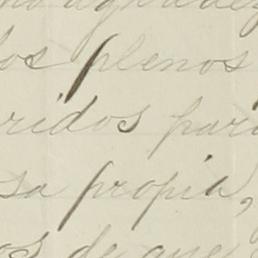 los plenos
ridos par
sa propia,
os de que